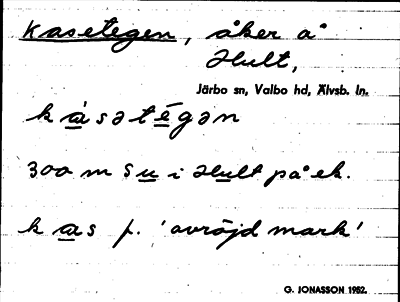 Kasetegen, åker å
Hult,
Järbo sn, Valbo hd, Älvsb. ln.
kásətégən
300 m S u i Hult på ek.
kas f. 'avröjd mark'
G. JONASSON 1982.